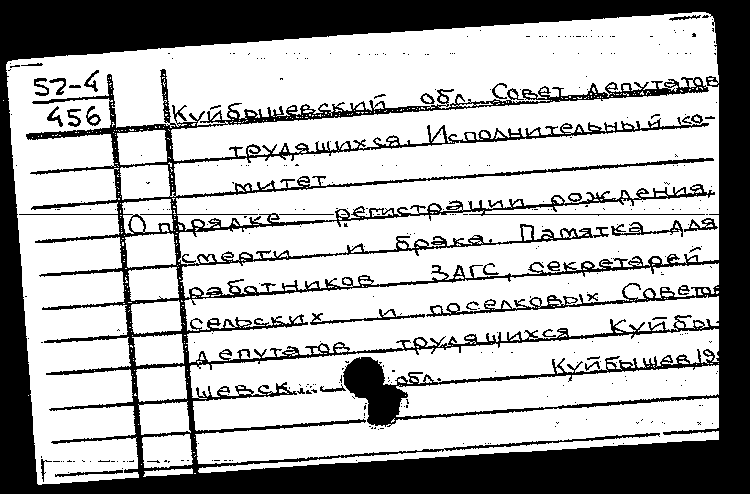 52-4
456
Куйбышевский обл. Совет депутатов
трудящихся. Исполнительный ко-
митет
О порядке регистрации рождения,
смерти и брака. Памятка для
работников ЗАГС, секретарей
сельских и поселковых Советов
депутатов трудящихся Куйбы-
шевск... обл. Куйбышев, 19